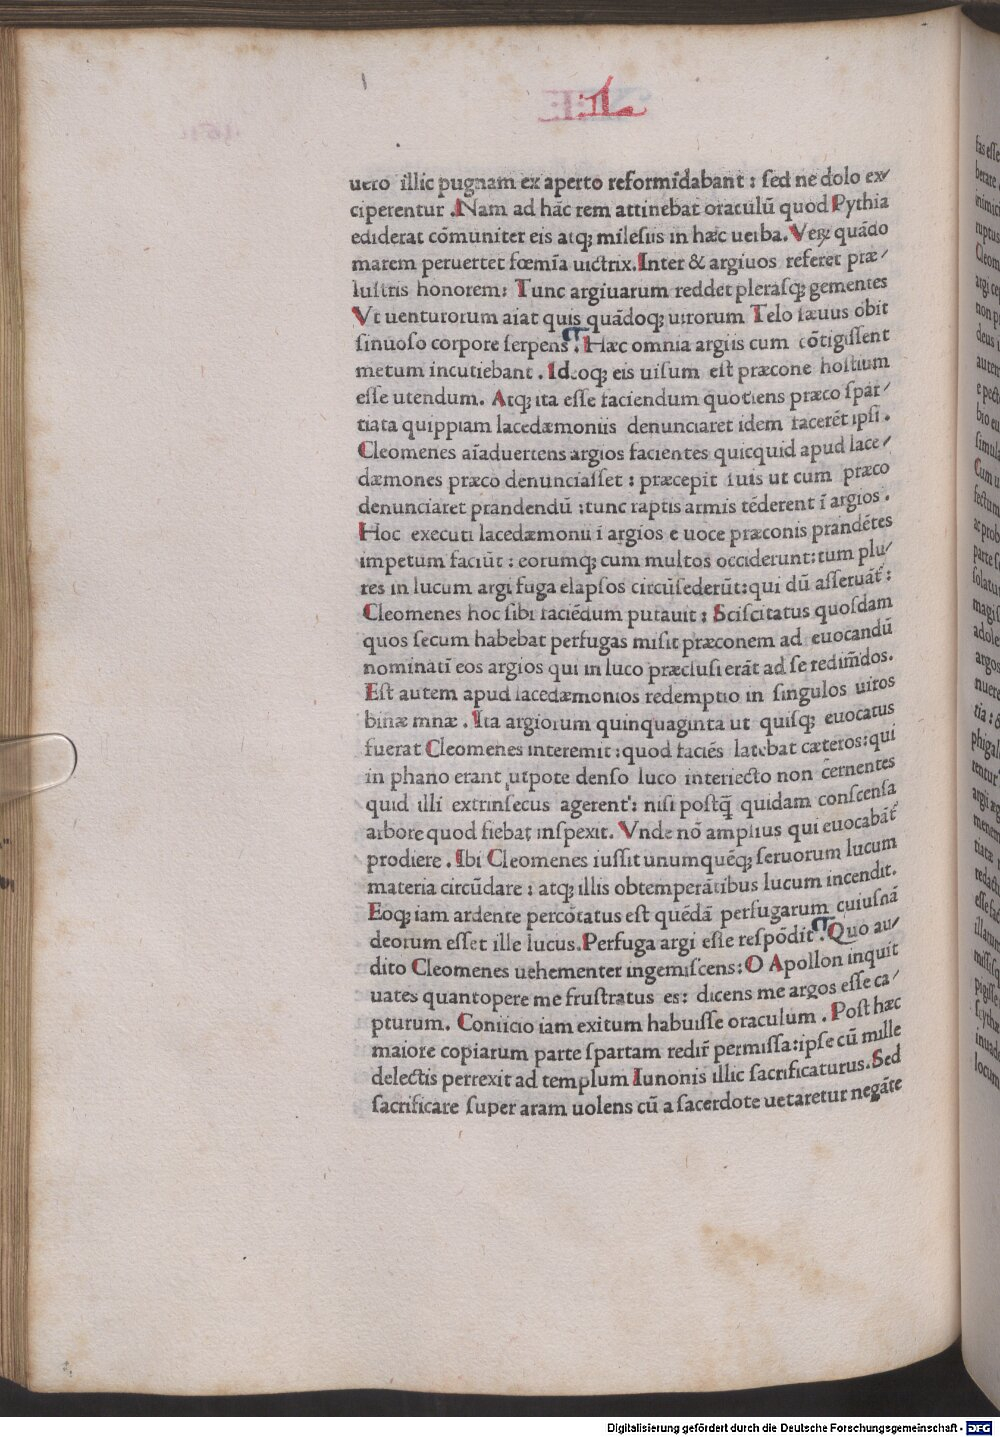 .L.
uero illic pugnam ex aperto reformīdabant : sed ne dolo ex/
ciperentur .Nam ad hāc rem attinebat oraculū quod Pythia
ediderat cōmuniter eis atq; milesiis in hæc uerba.Veꝝ quādo
marem peruertet fœmīa uictrix.Inter & argiuos referet præ/
lustris honorem: Tunc argiuarum reddet plerasq; gementes
Vt uenturorum aiat quis quādoq; uirorum Telo sæuus obit
sinuoso corpore serpens¶. Hæc omnia argiis cum cōtigissent
metum incutiebant . Ideoq; eis uisum est præcone hostium
esse utendum. Atq; ita esse faciendum quotiens præco spar/
tiata quippiam lacedæmoniis denunciaret idem facerēt ipsi.
Cleomenes aīaduertens argios facientes quicquid apud lace/
dæmones præco denunciasset : præcepit suis ut cum præco
denunciaret prandendū :tunc raptis armis tēderent ī argios.
Hoc executi lacedæmonii ī argios e uoce præconis prandētes
impetum faciūt : eorumq; cum multos occiderunt:tum plu/
res in lucum argi fuga elapsos circūsederūt:qui dū asseruāt̄:
Cleomenes hoc sibi faciēdum putauit : Sciscitatus quosdam
quos secum habebat perfugas misit præconem ad euocandū
nominatī eos argios qui in luco præclusi erāt ad se redim̄dos.
Est autem apud lacedæmonios redemptio in singulos uiros
binæ mnæ . Ita argiorum quinquaginta ut quisq; euocatus
fuerat Cleomenes interemit :quod faciēs latebat cæteros:qui
in phano erant utpote denso luco interiecto non cernentes
quid illi extrinsecus agerent: nisi postq̄ quidam conscensa
arbore quod fiebat inspexit. Vnde nō amplius qui euocabāt̄
prodiere . Ibi Cleomenes iussit unumquēq; seruorum lucum
materia circūdare : atq; illis obtemperātibus lucum incendit.
Eoq; iam ardente percōtatus est quēdā perfugarum cuiusnā
deorum esset ille lucus.Perfuga argi esse respōdit¶.Quo au/
dito Cleomenes uehementer ingemiscens: O Apollon inquit
uates quantopere me frustratus es: dicens me argos esse ca/
pturum. Coniicio iam exitum habuisse oraculum . Post hæc
maiore copiarum parte spartam redir̄ permissa:ipse cū mille
delectis perrexit ad templum Iunonis illic sacrificaturus.Sed
sacrificare super aram uolens cū a sacerdote uetaretur negāte
Digitalisierung gefördert durch die Deutsche Forschungsgemeinschaft - DFG